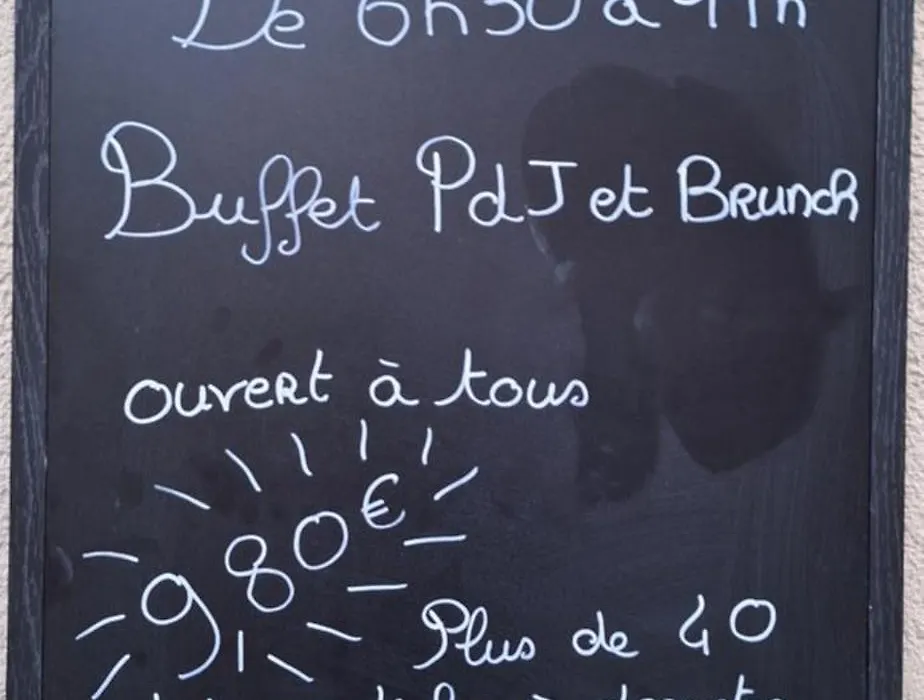 De 6h30 à 11h
Buffet PdJ et Brunch
ouvert à tous
980€
Plus de 40